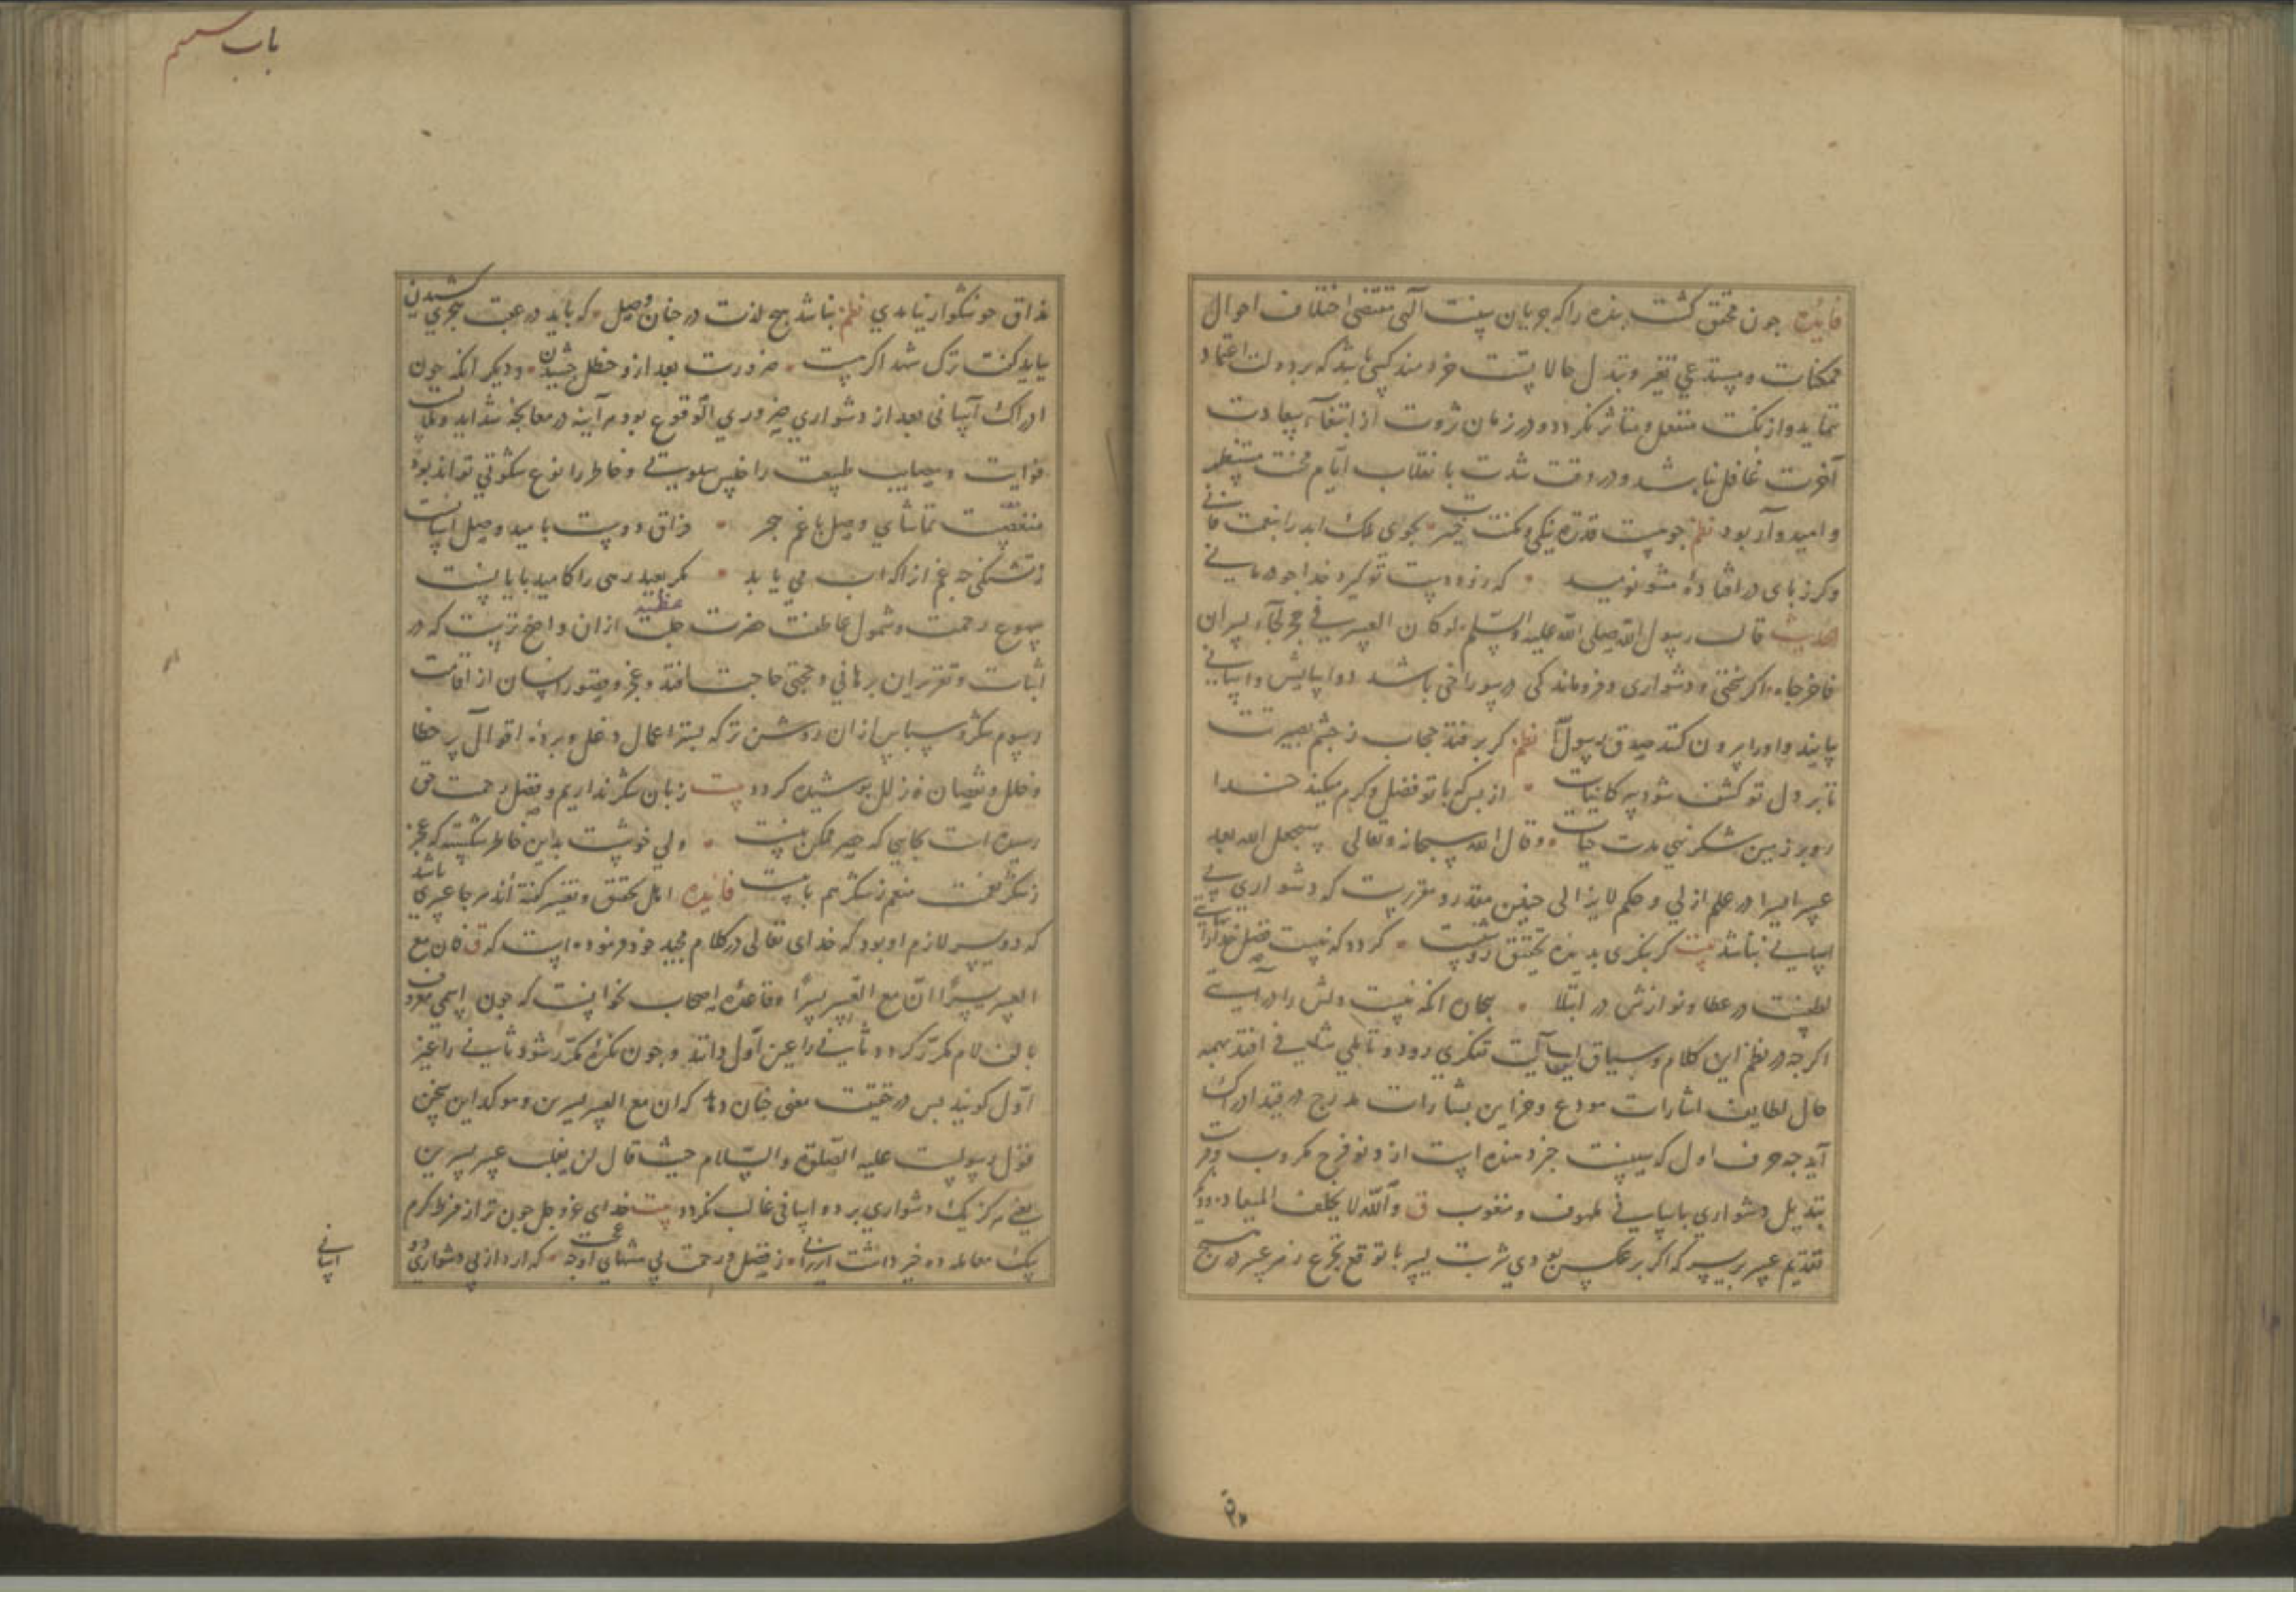 فایده چون محقق گشت بنده را که جریان سنت الهی مقتضی اختلاف احوال
ممکنات و مستدعی تغیر و تبدل حالاتست خردمند کسی باشد که بر دولت اعتماد
ننماید و از نکبت منفعل و متاثر نکردد و در زمان ثروت از ابتغاء سعادت
آخرت غافل نباشد و در وقت شدت بانقلاب ایام محنت منتظر
و امیدوار بود نظم جو هست قدرت نیکی و مکنت خیرت بجوی ملک ابد را بنعمت فانی
وکر ز پای در افتاده مشو نومید که زود دست تو کیرد خدا جو درمانی
حدیث قال رسول الله صلی الله علیه والسلم لو کان العسر فی حجر لجآء یسران
فاخرجاه اکر سختی و دشواری و فروماندکی در سوراخی باشد دو اسایش و اسانی
یابند و او را بیرون کنند صدق رسول الله نظم کر بر فتد حجاب ز چشم بصیرتت
تا بر دل تو کشف شود سر کاینات از بس که با تو فضل و کرم میکند خدا
رو بر زمین شکر نهی مدت حیات وقال الله سبحانه وتعالی سیجعل الله بعد
عسر یسرا در علم ازلی و حکم لایزالی چنین مقدر و مقررست که دشواری بی
اسانی نباشد بیت کر بنکری بدیده تحقیق روشنت کردد که نیست فضل خدا را
لطفیست در عطا و نوازش در ابتلا بجان انکه نیست دلش را در
اکرجه در نظم این کلام و سیاق این آیت تفکری رود و تاملی شافی افتد همه
حال لطایف اشارات مودع و خزاین بشارات مدرج در قید ادراک
آید جه حرف اول که سینست خبر دهنده است از دنو فرج مکروب و قرب
تبدیل دشواری باسانی ملهوف و منقوب ق والله لا یخلف المیعاد و دیکر
تقدیم عسر بر یسر که اکر بر عکس بودی شربت یسر با توقع تجرع زهر عسر در هیچ
باب ششم
مذاق خوشکوار نیامدی نظم نباشد هیچ لذت در جهان وصل که باید در عقب هجری کشیدن
بباید گفت ترک شهد اکر هست ضرورت بعد ازو حنظل چشیدن و دیکر انکه چون
ادراک آسانی بعد از دشواری ضروری الوقوع بود هر آینه در معالجه شداید و ملابست
نوایب و مصایب طبیعت را خلس سلوتی و خاطر را نوع سکونی تواند بود
منغصست تماشای وصل با غم هجر فراق دوست بامید وصل اسانست
ز تشنکی جه غم انرا که اب می یابد مکر بعید رهی را کامید پایانست
شیوع رحمت و شمول عاطفت حضرت جلت عظمته ازان واضح ترست که در
اثبات و تقریر ان برهانی و حجتی حاجت افتد و عجز و قصور انسان از اقامت
رسوم شکر و سپاس ازان روشن تر که بستر اعمال دغل و پرده اقوال پر خطا
و خلل و نقصان و زلل پوشیده کردد بیت زبان شکر نداریم و فضل رحمت حق
رسیده است بجایی که حصر ممکن نیست ولی خوشست بدین خاطر شکسته که عجز
ز شکر نعمت منعم ز شکر هم بابیست فایده اهل تحقیق و تفسیر کفته اند هر جا عسری باشد
که دو یسر لازم او بود که خدای تعالی در کلام مجید خود فرموده است که ق فان مع
العسر یسرًا ان مع العسر یسرًا و قاعده اصحاب نحو انست که چون اسمی معرف
بالف لام مکرّر کردد ثانی را عین اول دانند و چون نکره مکرّر شود ثانی را غیر
اول کویند پس در حقیقت معنی چنان دهد که ان مع العسر یسرین و موکد این سخن
قول رسولست علیه الصّلوة والسّلام حیث قال لن یغلب عسر یسرین
یعنی هرکز یک دشواری بر دو اسانی غالب نکردد بیت خدای عز و جل چون تر از فرط کرم
یک معامله ده خیر داشت ارزانی ز فضل و رحمت بی منتهای او چه عجب که آرد از پی دشواری دو
اسانی